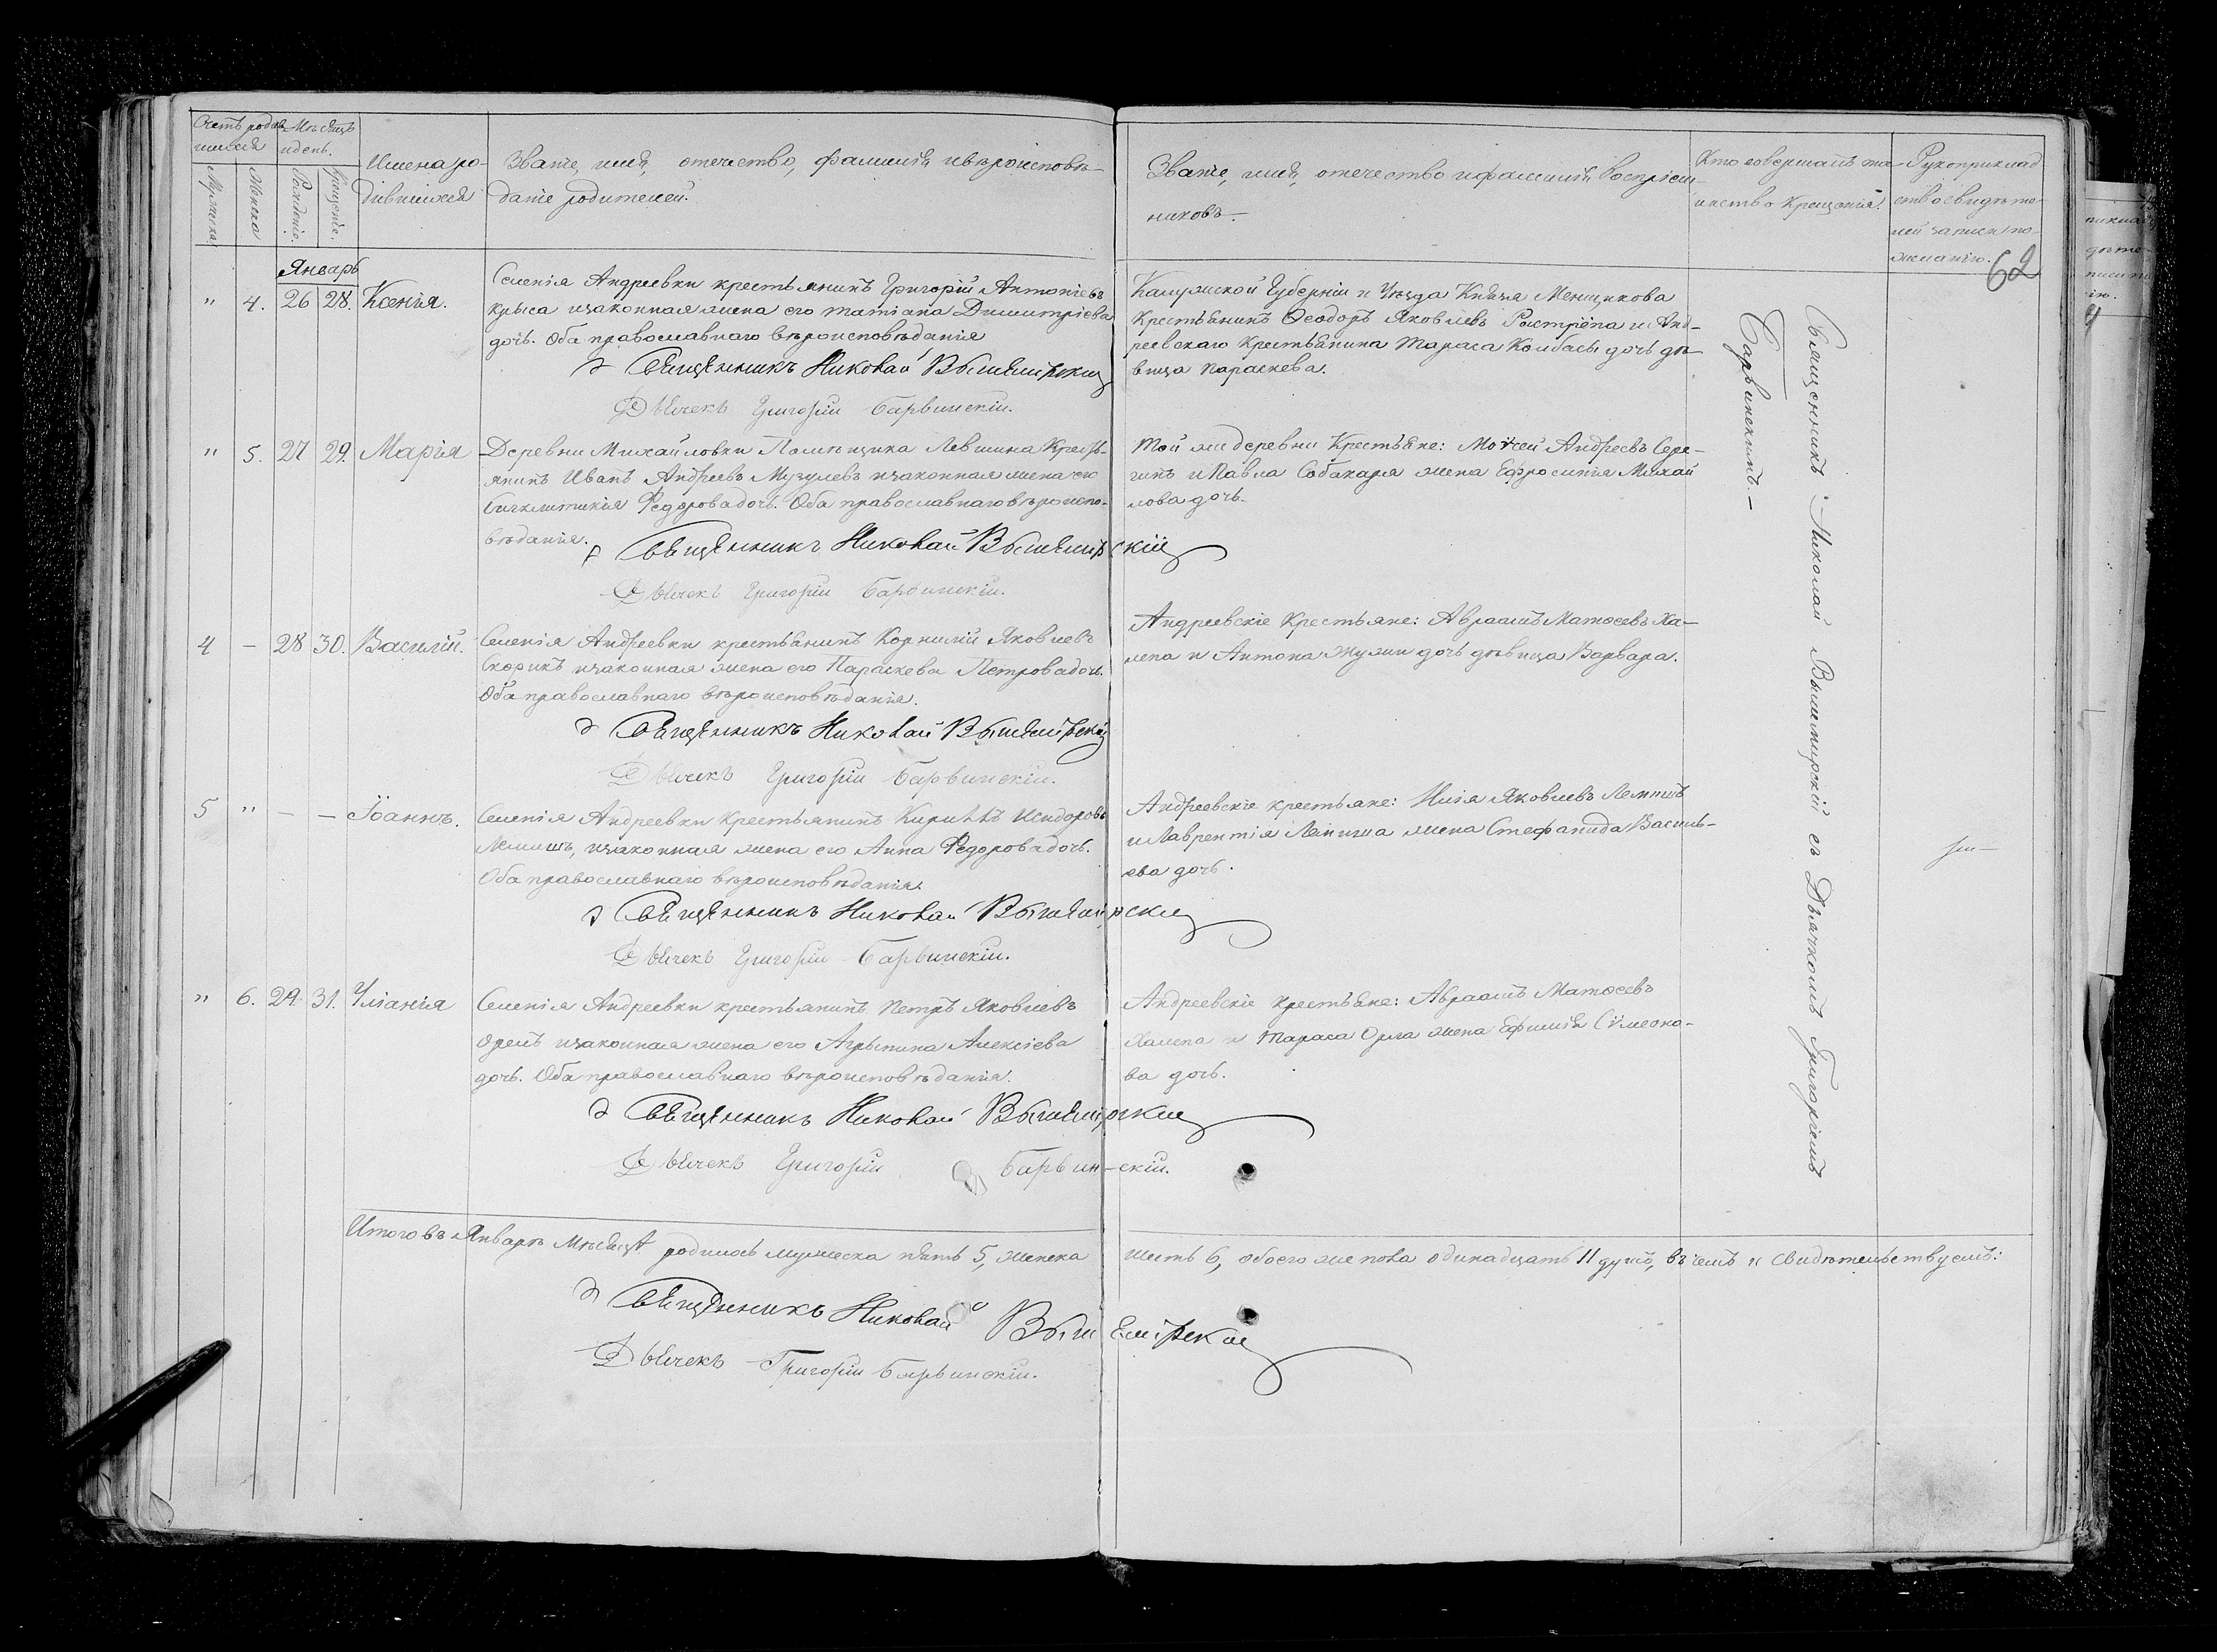 Счетъ родив-
шихся
Мѣсяцъ
и день.
Имена ро-
дившихся
Званіе, имя, отечество, фамилія и вѣроисповѣ-
даніе родителей.
Званіе, имя, отечество и фамилія воспріем-
никовъ.
Кто совершалъ та-
инство крещенія.
Рукоприклад
ство свидѣте-
лей записи по-
желанію.
62
Мужеска
Женска
Рожденіе.
Крещеніе.
Январь
" 4. 26 28. Ксенія.
Селенія Андреевки крестьянинъ Григорій Антоніевъ
Крыса и законная жена его Татіана Димитріева
дочь. Оба православнаго вѣроисповѣданія
Священникъ Николай Вышемірскій
Дьячекъ Григорій Барвинскій.
Калужской Губерніи и Уѣзда Князя Менщикова
Крестьянинъ Ѳеодоръ Яковлевъ Растрёпа и Анд-
реевскаго крестьянина Тараса Колбасы дочь дѣ-
вица Параскева.
" 5. 27 29. Марія
Деревни Михайловки Помѣщика Левшина Кресть-
янинъ Иванъ Андреевъ Музулевъ и законная жена его
Сигклитикія Ѳедорова дочь. Оба православнаго вѣроиспо-
вѣданія.
Священникъ Николай Вышемірскій
Дьячекъ Григорій Барвинскій.
Той же деревни Крестьяне: Моѵсей Андреевъ Сере-
гинъ и Павла Собакаря жена Ефросинія Михай
лова дочь.
4 - 28 30. Василій.
Селенія Андреевки крестьянинъ Корнилій Яковлевъ
Скорикъ и законная жена его Параскева Петрова дочь.
Оба православнаго вѣроисповѣданія.
Священникъ Николай Вышемірскій
Дьячекъ Григорій Барвинскій.
Андреевскіе Крестьяне: Авраамъ Матѳеевъ Ха-
лепа и Антона Жужи дочь дѣвица Варвара.
5 " - - Іоаннъ.
Селенія Андреевки крестьянинъ Кириллъ Исидоровъ
Лемишъ, и законная жена его Анна Ѳедорова дочь.
Оба православнаго вѣроисповѣданія.
Священникъ Николай Вышемірскій
Дьячекъ Григорій Барвинскій.
Андреевскіе крестьяне: Илія Яковлевъ Лемишъ
и Лаврентія Лемиша жена Стефанида Василь-
ева дочь.
" 6. 29. 31. Уліанія
Селенія Андреевки крестьянинъ Петръ Яковлевъ
Орелъ и законная жена его Агрыпина Алексіева
дочь. Оба православнаго вѣроисповѣданія.
Священникъ Николай Вышемірскій
Дьячекъ Григорій Барвинскій.
Андреевскіе крестьяне: Авраамъ Матѳеевъ
Халепа и Тараса Орла жена Ефимія Сѵмеоно-
ва дочь.
Священникъ Николай Вышемирскій съ Дьячкомъ Григоріемъ
Барвинскимъ.-
Итого въ Январѣ Мѣсяцѣ родилось мужеска пять 5, женска шесть 6, обоего же пола одинадцать 11 душъ, въ чемъ и свидѣтельствуемъ:
Священникъ Николай Вышемірскій
Дьячекъ Григорій Барвинскій.